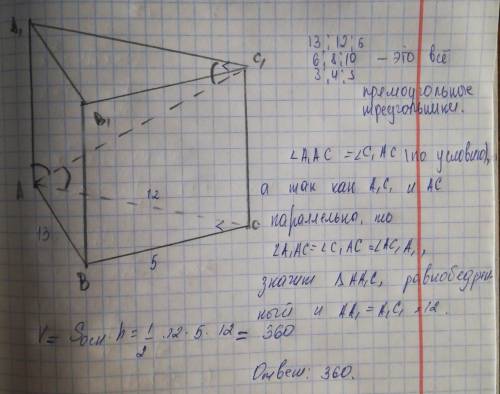 A₁
C₁
B₁
A
12
C
13
B
5
13; 12; 5
6; 8; 10 - это всё
3; 4; 5
прямоугольные
треугольники.
∠A₁AC = ∠C₁AC (по условию),
а так как A₁C₁ и AC
параллельно, то
∠A₁AC = ∠C₁AC = ∠AC₁A₁,
значит ΔAA₁C₁ равнобедрен
ный и AA₁ = A₁C₁ = 12.
V = Sосн · h = 1/2 · 12 · 5 · 12 = 360
Ответ: 360.